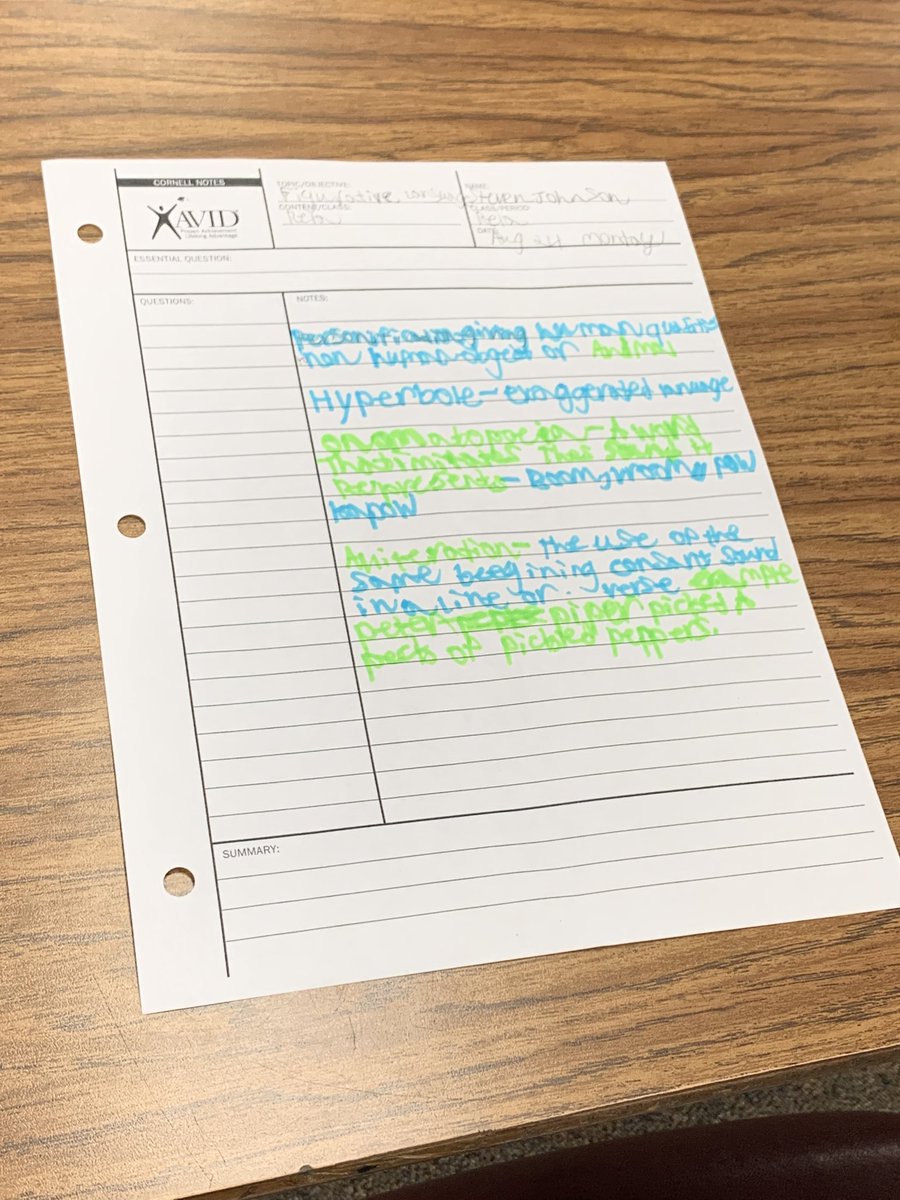 CORNELL NOTES
AVID
Proven Achievement.
Lifelong Advantage.
TOPIC/OBJECTIVE:
Figurative
CONTENT/CLASS:
Rela
NAME:
Steven Johnson
CLASS/PERIOD
Rela
DATE:
Aug 24 monday
ESSENTIAL QUESTION:
QUESTIONS:
NOTES:
giving human
non human or Animal
Hyperbole- exaggerated
onomatopoeia- A word
that imitates that sound it
Represents- Boom, vroom, pow
kapow
Aliteration- the use of the
same beegining consant sound
in a line or verse example
peter piper picked A
peck of pickled peppers.
SUMMARY: